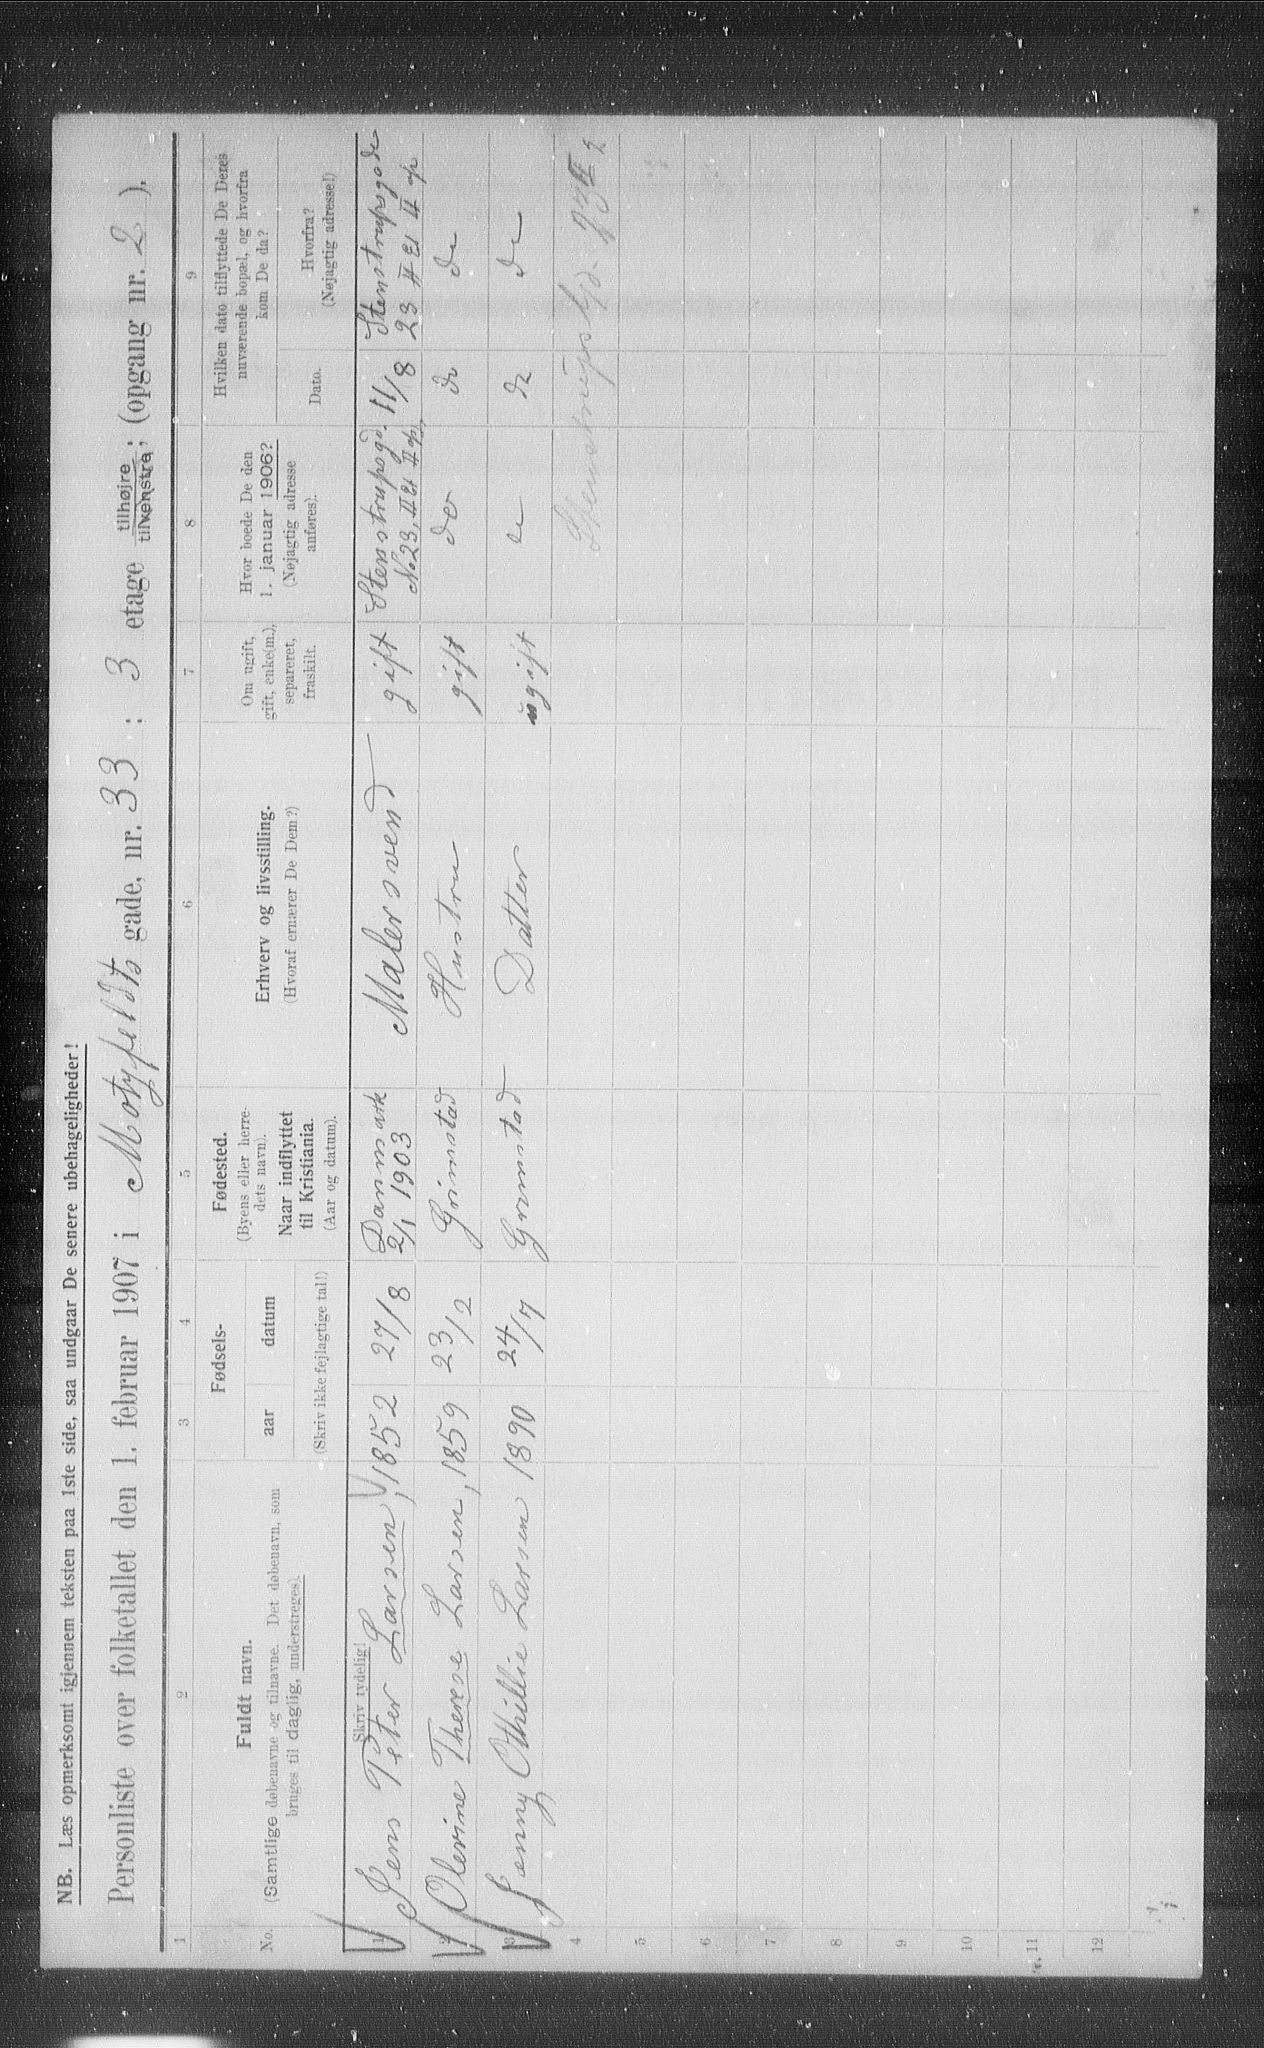 NB. Læs opmerksomt igjennem teksten paa 1ste side, saa undgaar De senere ubehageligheder!
Personliste over folketallet den 1. februar 1907 i Motzfeldts gade, nr. 33 : 3 etage tilhøjre tilvenstre; (opgang nr. 2 ).
1 2 3 4 5 6 7 8 9
No.
Fuldt navn.
(Samtlige døbenavne og tilnavne. Det døbenavn, som
bruges til daglig, understreges).
Fødsels-
aar datum
(Skriv ikke fejlagtige tal!)
Fødested.
(Byens eller herre-
dets navn).
Naar indflyttet
til Kristiania.
(Aar og datum).
Erhverv og livsstilling.
(Hvoraf ernærer De Dem?)
Om ugift,
gift, enke(m.),
separeret,
fraskilt.
Hvor boede De den
1. januar 1906?
(Nøjagtig adresse
anføres).
Hvilken dato tilflyttede De Deres
nuværende bopæl, og hvorfra
kom De da?
Dato.
Hvorfra?
(Nøjagtig adresse!)
Skriv tydelig!
1 Jens Peter Larsen, 1852 27/8 Danmark 2/1 1903 Malersvend gift Stenstrupsgd. No 23, II Et II op, 11/8 Stenstrupsgade 23 II Et II op
2 Olevine Therese Larsen, 1859 23/2 Grimstad Hustru gift do do de
3 Jenny Othillie Larsen 1890 24/7 Grimstad Datter ugift de do de
4 Stenstrups
5
6
7
8
9
10
11
12